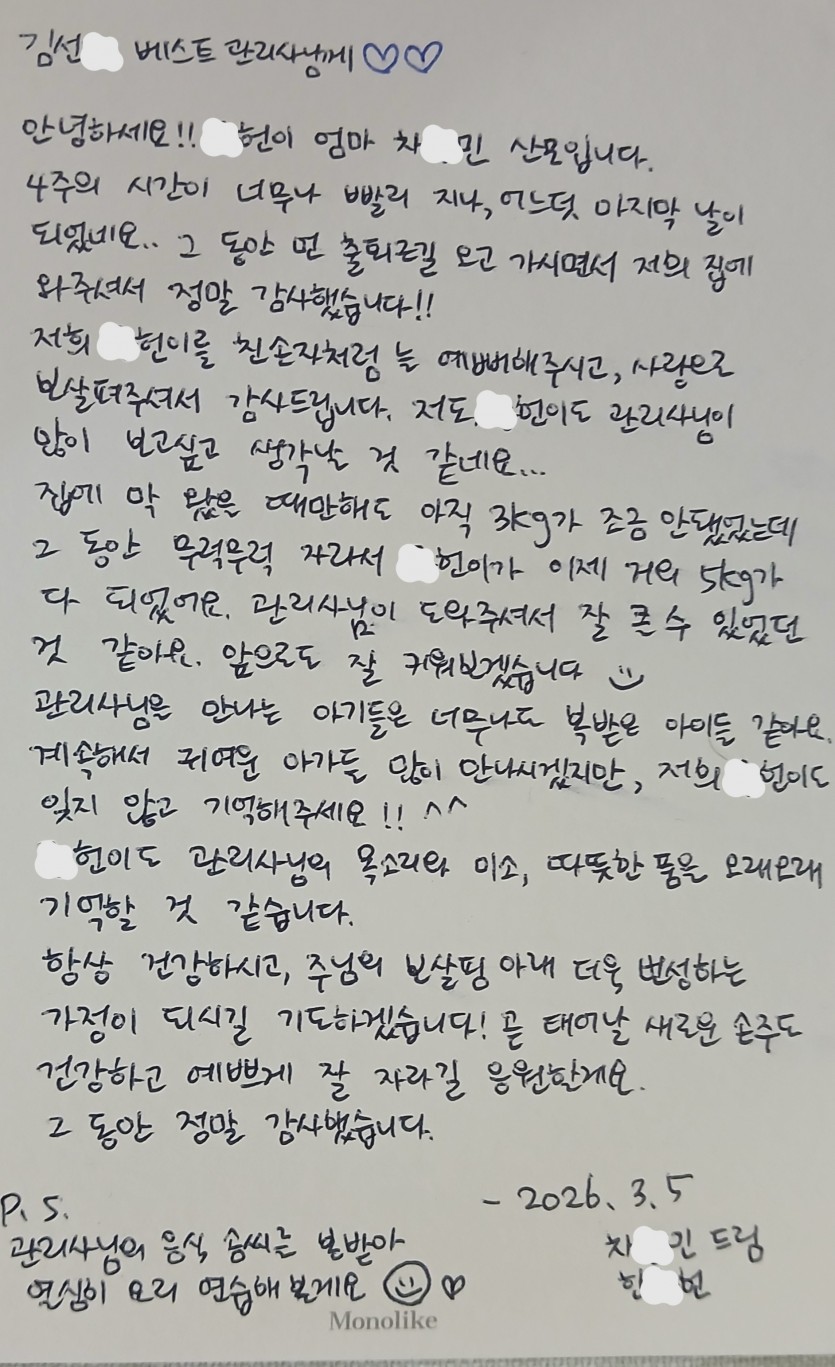 김선 베스트 관리사님께 ♡♡
안녕하세요!! 헌이 엄마 차 민 산모입니다.
4주의 시간이 너무나 빨리 지나, 어느덧 마지막 날이
되었네요.. 그 동안 먼 출퇴근길 오고 가시면서 저희 집에
와주셔서 정말 감사했습니다!!
저희 헌이를 친손자처럼 늘 예뻐해주시고, 사랑으로
보살펴주셔서 감사드립니다. 저도 헌이도 관리사님이
많이 보고싶고 생각날 것 같네요...
집에 막 왔을 때만해도 아직 3kg가 조금 안됐었는데
그 동안 무럭무럭 자라서 헌이가 이제 거의 5kg가
다 되었어요. 관리사님이 도와주셔서 잘 클 수 있었던
것 같아요. 앞으로도 잘 키워보겠습니다
관리사님을 만나는 아기들은 너무나도 복받은 아이들 같아요.
계속해서 귀여운 아가들 많이 만나시겠지만, 저희 헌이도
잊지 않고 기억해주세요!! ^^
헌이도 관리사님의 목소리와 미소, 따뜻한 품을 오래오래
기억할 것 같습니다.
항상 건강하시고, 주님의 보살핌 아래 더욱 번성하는
가정이 되시길 기도하겠습니다! 곧 태어날 새로운 손주도
건강하고 예쁘게 잘 자라길 응원할게요.
그 동안 정말 감사했습니다.
- 2026. 3. 5
차 민 드림
한 헌
P. S.
관리사님의 음식 솜씨를 본받아
열심히 요리 연습해 볼게요 ♡
Monolike